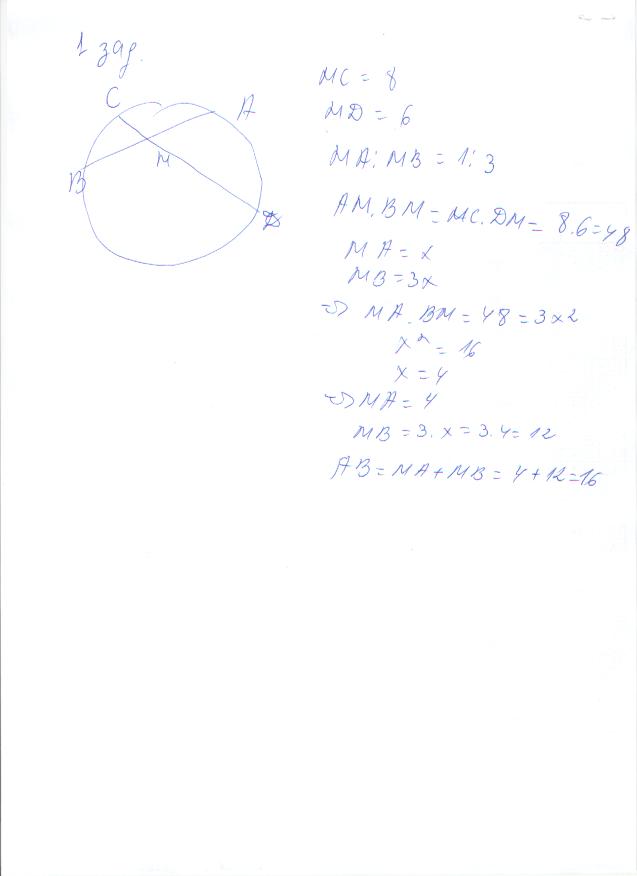 1 зад.
C
A
M
B
D
MC = 8
MD = 6
MA : MB = 1 : 3
AM . BM = MC . DM = 8.6 = 48
MA = x
MB = 3x
=> MA . BM = 48 = 3x2
x² = 16
x = 4
=> MA = 4
MB = 3. x = 3.4 = 12
AB = MA + MB = 4 + 12 = 16